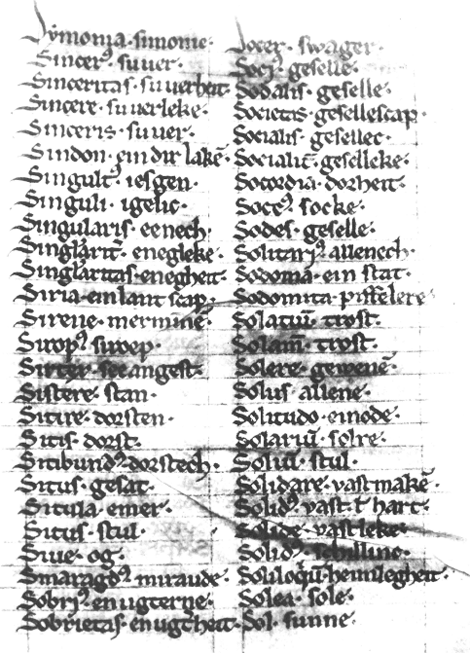 Symonia · simonie ·
Sincerꝰ · suuer ·
Sinceritas · suuerheit ·
Sincere · suuerleke ·
Sinceris · suuer ·
Sindon · ein dir lakē ·
Singultꝰ · iesgen ·
Singuli · igelic ·
Singularis · eenech ·
Singlarit̄ · enegleke ·
Singlaritas · enegheit ·
Siria · ein lant scap ·
Sirene · merminē ·
Siropꝰ · siroep ·
Sirtes · see angest ·
Sistere · stan ·
Sitire · dorsten ·
Sitis · dorst ·
Sitibundꝰ · dorstech ·
Situs · gesat ·
Situla · emer ·
Situs · stul ·
Siue · og ·
Smaragdꝰ · miraude ·
Sobriꝰ · en ugterne ·
Sobrietas · en ugtheit ·
Socer · swager ·
Sociꝰ · geselle ·
Sodalis · geselle ·
Societas · gesellescap ·
Socialis · gesellec ·
Socialit̄ · geselleke ·
Socordia · dorheit ·
Soccꝰ · socke ·
Sodes · geselle ·
Solitariꝰ · allenech ·
Sodoma · ein stat ·
Sodomita · piffelere
Solatiū · trost ·
Solam̄ · trost ·
Solere · gewenē ·
Solus · allene ·
Solitudo · einode ·
Solariū · solre ·
Soliū · stul ·
Solidare · vast makē ·
Solidꝰ · vast · t̄ hart ·
Solide · vastleke ·
Solidꝰ · schillinc ·
Soliloquiū · heimlegheit ·
Solea · sole ·
Sol · sunne ·